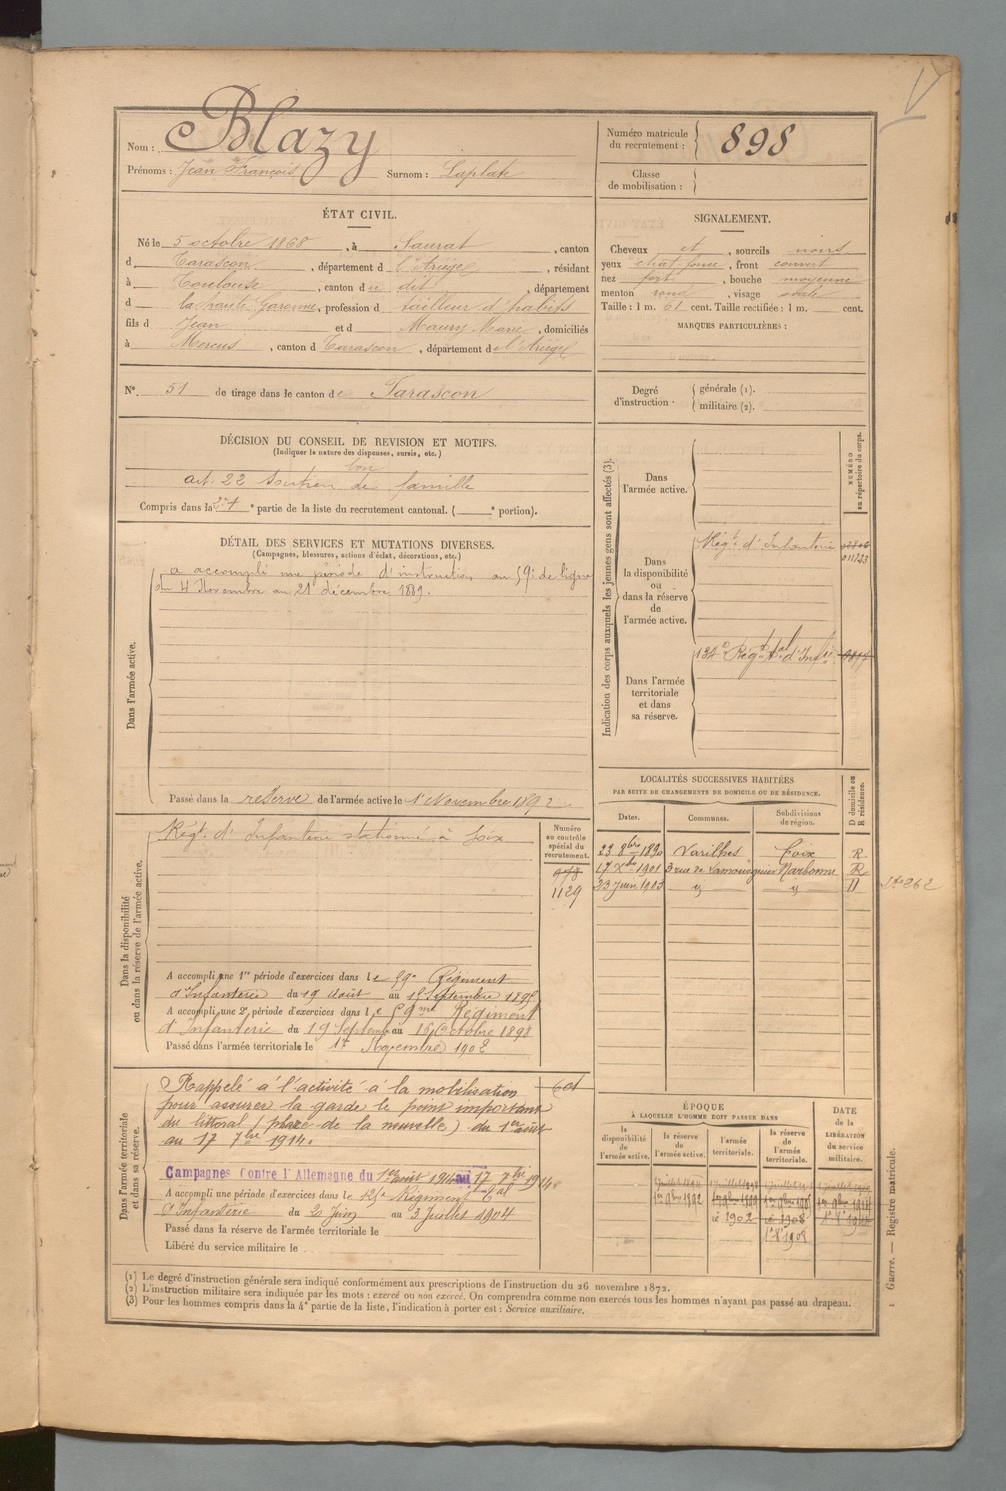 V
Nom : Blazy
Prénoms : Jean François Surnom : Laplate
Numéro matricule du recrutement : 898
Classe de mobilisation :
ÉTAT CIVIL.
Né le 5 octobre 1868, à Saurat, canton
d Tarascon, département d l'Ariège, résidant
à Toulouse, canton du dit, département
d la haute Garonne, profession d tailleur d'habits
fils d Jean et d Maury Marie, domiciliés
à Mercus, canton d Tarascon, département de l'Ariège
SIGNALEMENT.
Cheveux et, sourcils noirs
yeux chat foncé, front couvert
nez fort, bouche moyenne
menton rond, visage ovale
Taille : 1 m. 61 cent. Taille rectifiée : 1 m. cent.
MARQUES PARTICULIÈRES :
N° 51 de tirage dans le canton de Tarascon
Degré d'instruction : générale (1).
militaire (2).
DÉCISION DU CONSEIL DE REVISION ET MOTIFS.
(Indiquer la nature des dispenses, sursis, etc.)
bon
art. 22 soutien de famille
Compris dans la 2e partie de la liste du recrutement cantonal. ( e portion).
DÉTAIL DES SERVICES ET MUTATIONS DIVERSES.
(Campagnes, blessures, actions d'éclat, décorations, etc.)
Dans l'armée active.
a accompli une période d'instruction au 59e de ligne
du 4 Novembre au 21 décembre 1889.
Passé dans la reserve de l'armée active le 1 Novembre 1892
Indication des corps auxquels les jeunes gens sont affectés (3).
NUMÉRO au répertoire du corps.
Dans l'armée active.
Dans la disponibilité ou dans la réserve de l'armée active.
Régt d'Infanterie
Dans l'armée territoriale et dans sa réserve.
134e Regt tal d'Infie
Dans la disponibilité ou dans la réserve de l'armée active.
Régt d'Infanterie stationné à Foix
Numéro au contrôle spécial du recrutement.
978
1129
A accompli une 1re période d'exercices dans le 59e Régiment
d'Infanterie du 19 août au 15 Septembre 1895
A accompli une 2e période d'exercices dans le 59me Régiment
d'Infanterie du 19 Septembre au 16 Octobre 1898
Passé dans l'armée territoriale le 1er Novembre 1902
LOCALITÉS SUCCESSIVES HABITÉES
PAR SUITE DE CHANGEMENTS DE DOMICILE OU DE RÉSIDENCE.
Dates. Communes. Subdivisions de région. D domicile ou R résidence.
23 8bre 1890 Varilhes Foix R
17 Xbre 1901 3 rue de Lamourguier Narbonne R
23 Juin 1903 " " D
Dans l'armée territoriale et dans sa réserve.
Rappelé à l'activité à la mobilisation
pour assurer la garde le point important
du littoral (place de la nouvelle) du 1er août
au 17 7bre 1914.
601
Campagnes Contre l'Allemagne du 1er août 1914 au 17 7bre 1914
A accompli une période d'exercices dans le 125e Régiment tal
d'Infanterie du 20 Juin au 3 Juillet 1904
Passé dans la réserve de l'armée territoriale le
Libéré du service militaire le
ÉPOQUE
À LAQUELLE L'HOMME DOIT PASSER DANS
la disponibilité de l'armée active.
la réserve de l'armée active.
l'armée territoriale.
la réserve de l'armée territoriale.
DATE de la LIBÉRATION du service militaire.
1er 9bre 1892
1902
1908
(1) Le degré d'instruction générale sera indiqué conformément aux prescriptions de l'instruction du 26 novembre 1872.
(2) L'instruction militaire sera indiquée par les mots : exercé ou non exercé. On comprendra comme non exercés tous les hommes n'ayant pas passé au drapeau.
(3) Pour les hommes compris dans la 4e partie de la liste, l'indication à porter est : Service auxiliaire.
Guerre. — Registre matricule.